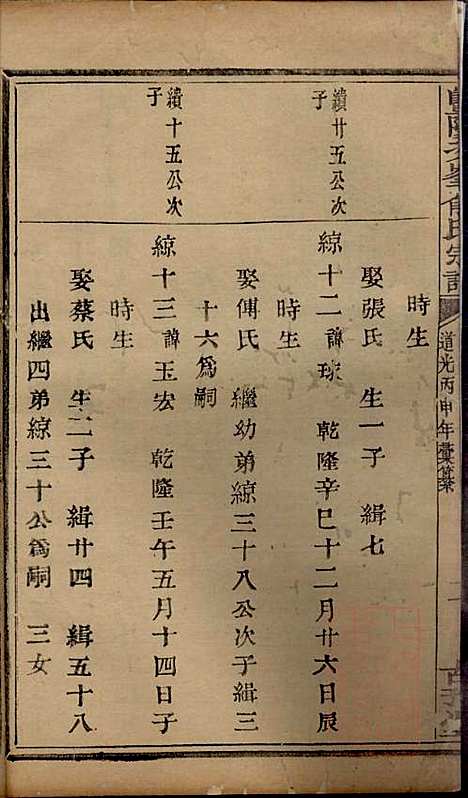 時生
娶張氏 生一子 緝七
續廿五公次子
綡十二 諱球 乾隆辛巳十二月廿六日辰
時生
娶傅氏 繼幼弟綡三十八公次子緝三
十六爲嗣
續十五公次子
綡十三 諱玉宏 乾隆壬午五月十四日子
時生
娶蔡氏 生二子 緝廿四 緝五十八
出繼四弟綡三十公爲嗣 三女
道光丙申年彙纂